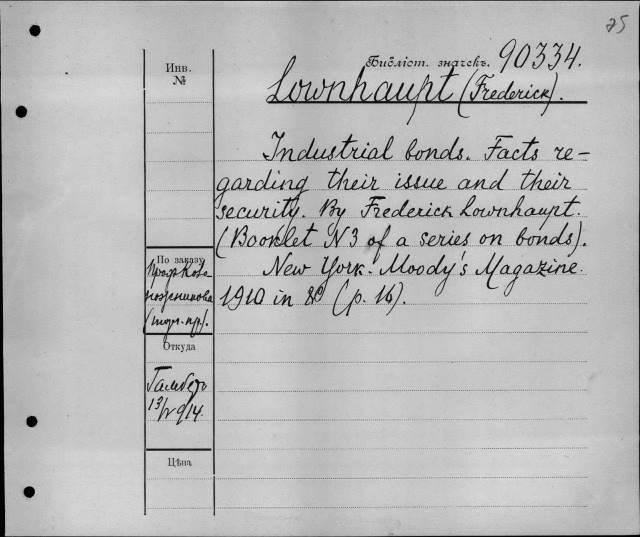 25
Библіот. значекъ. 90334.
Инв.
№
Lownhaupt (Frederick).
Industrial bonds. Facts re-
garding their issue and their
security. By Frederick Lownhaupt.
(Booklet N3 of a series on bonds).
New York. Moody's Magazine.
1910 in 8° (p. 16).
По заказу
Проф. Коже
(торг. пр.).
Откуда
13/V 914.
Цѣна